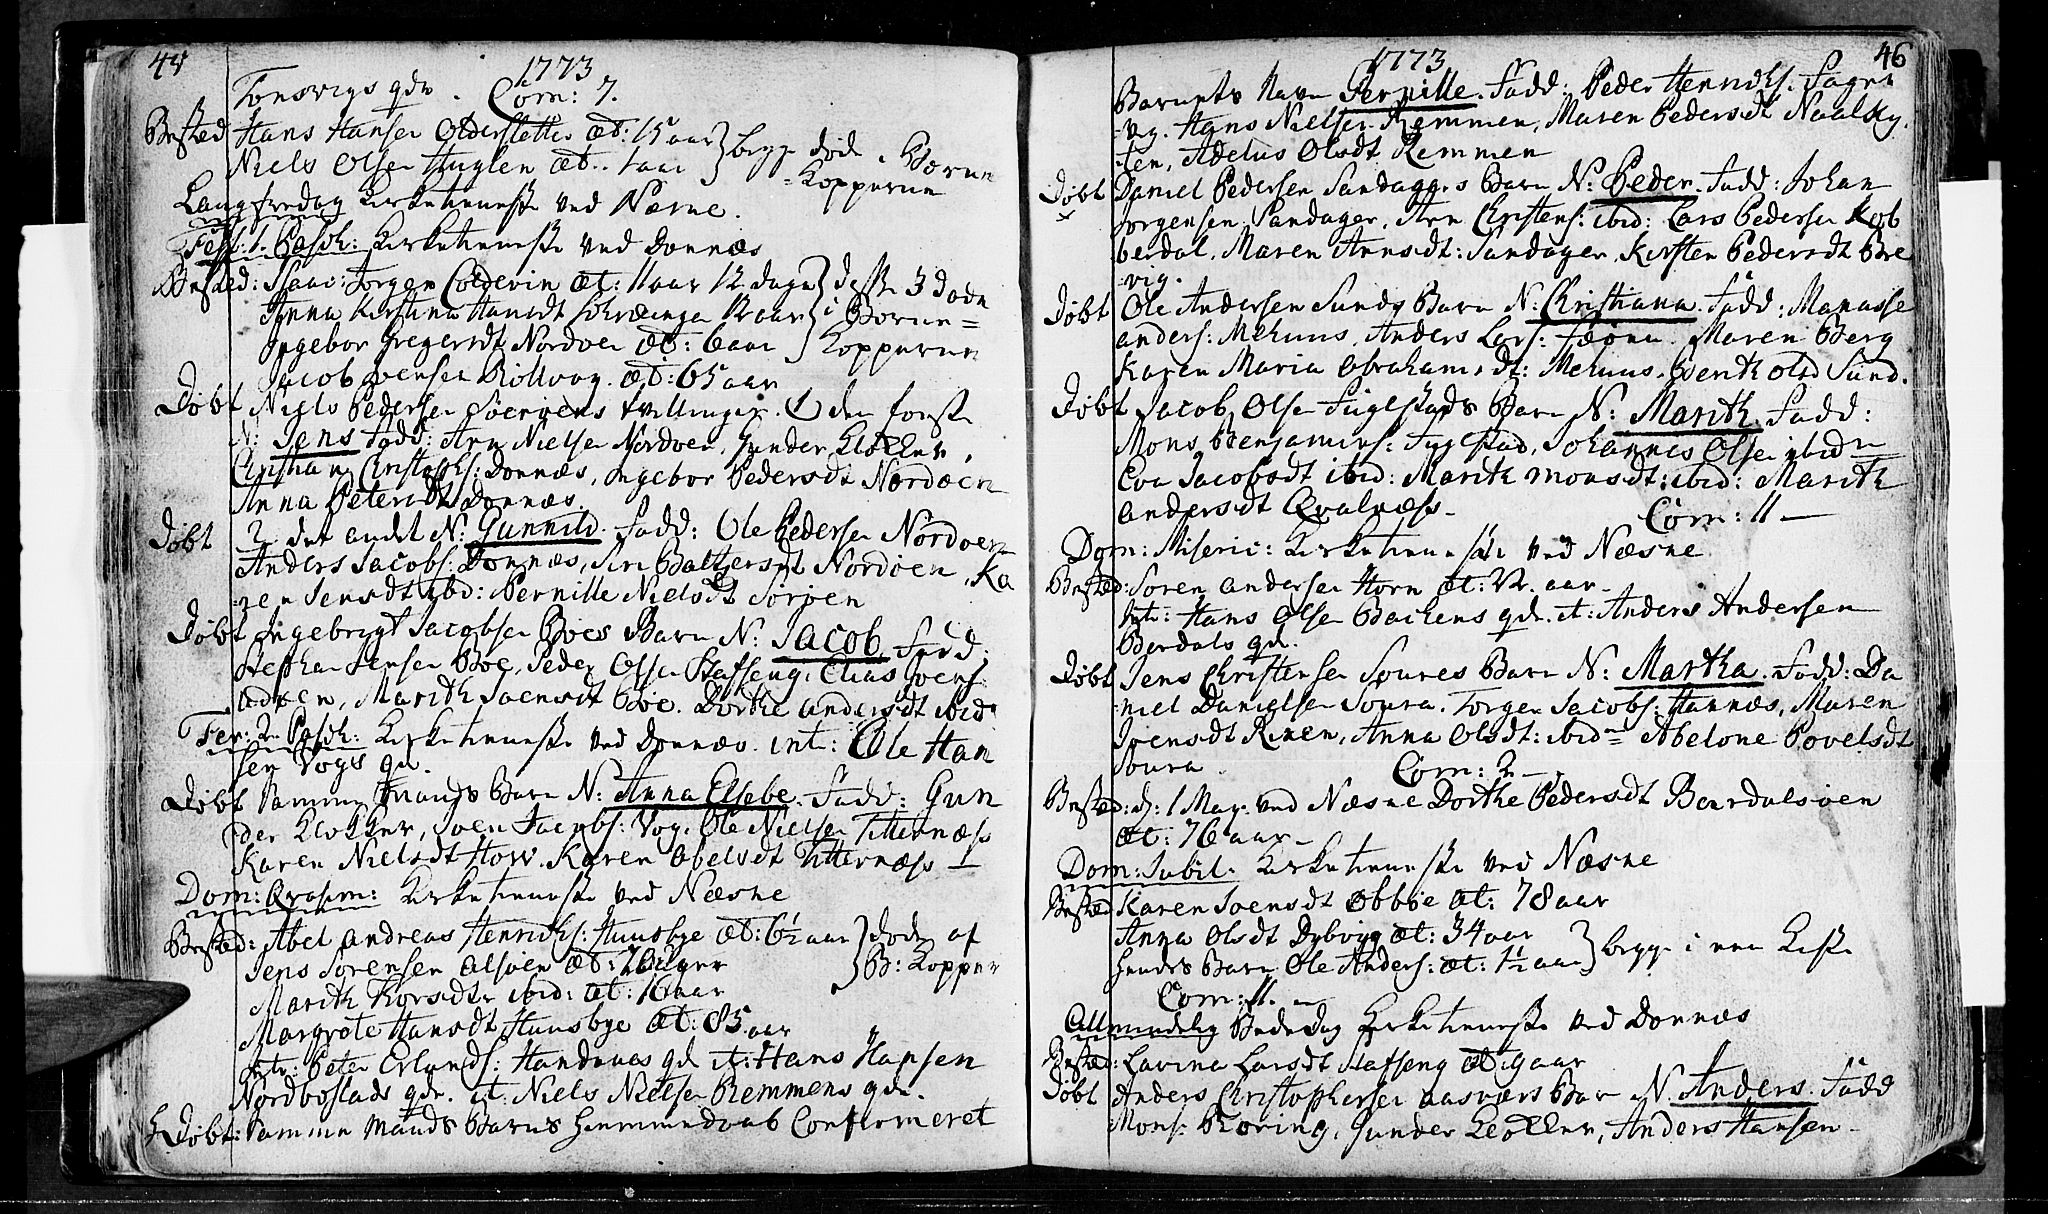 1773
Tonsvigs qdr. Com: 7.
Bested Hans Hansen Oldersletten æt: 15 aar } begge døde i Børne
Niels Olsen Huglen æt: 1 aar } =Kopperne
Langfredag Kirketieneste ved Næsne.
Fest: 1. Pasch: Kirketieneste ved Dønnæs
Bested: Isaac Jørgen Coldevin æt: 11 aar 12 dage } disse 3 døde
Anna Kirstina Hansdt 12 aar } i Børne=
Ingebor Gregersdt Nordøen æt: 6 aar } Kopperne
Jacob Joensen Rølvog. æt: 65 aar
Døbt Niels Pedersen Søerøens tvillinger. 1) den første
N: Jens Fadd: Arn Nielsen Nordøen, Gunder Klokker,
Christian Christophs: Dønnæs, Ingebor Pedersdt Nordøen
Anna Petersdt Dønnæs.
Døbt 2 det andet N: Gunnild. Fadd: Ole Pedersen Nordøen
Anders Jacobs: Dønnæs, Siri Baltzersdt Nordøen, Ka
=ren Jensdt ibd: Pernille Nielsdt Sørøen
Døbt Ingebrigt Jacobsen Bøes Barn N: Jacob, Fadd:
Stephan Jensen Bøe, Peder Olsen Staffseng, Elias Joens:
Marith Joensdt Bøe. Dorthe Andersdt ibid
Fer: 2. Pasch: Kirketieneste ved Dønnæs. int: Ole Han
sen Vogs qd.
Døbt Samme Mands Barn N: Anna Elsebe. Fadd: Gun
der Klokker, Joen Jacobs: Vog, Ole Nielsen Titternæss
Karen Nielsdt How. Karen Abelsdt Titternæss
Dom: Qvasim: Kirketieneste ved Næsne
Bested: Abel Andreas Henrichs: Huusbye æt: 6½ aar } døde af
Jens Sørensen Alsøen æt: } B: Kopper
Marith ibid: æt: 16 aar
Margrete Hansdt Huusbye æt: 85 aar
Intr: Peter Erlands: Handnæs qd it: Hans Hansen
Nordbostads qdr. it: Niels Nielsen Remmens qdr.
HDøbt: Samme Mands Barns Hiemmedaab Confirmeret
1773 46
Barnets Navn Pernille. Fadd: Peder Henrichs: Fager
=vig. Hans Nielsen Remmen, Maren Pedersdt Naalsky.
ten, Adelus Olsdt Remmen
Døbt Daniel Pedersen Sandagers Barn N: Peder. Fadd: Johan
Jørgensen Sandager, Arn Christens: ibid: Lars Pedersen Kob
berdal, Maren Arnsdt: Sandager, Kirsten Pedersdt Bre
vig.
Døbt Ole Andersen Sunds Barn N: Christiana. Fadd: Manasse
Anders: Mehuus, Anders Lars: Maren Berg
Karen Maria Abrahamsdt: Mehuus, Berith Olsd Sund.
Døbt Jacob Olsen Fuglstads Barn N: Marith Fadd:
Mons Benjamins: Fuglstad, Johannes Olsen ibid
Eva Jacobsdt ibid: Marith Monsdt: ibid: Marith
Andersdt Qvalnæss. Com: 11
Dom: Miseric: Kirketieneste ved Næsne
Bested: Søren Andersen Horn æt: 22. aar
Int: Hans Olsen Bachens qdr. it: Anders Andersen
Berdals qd.
Døbt Jens Christensen Soures Barn N: Martha. Fadd: Da
=niel Danielsen Soura. Jørgen Jacobs: Hannæs, Maren
Joensdt Remen, Anna Olsdt: ibid Abelone Povelsdt
Soura. Com: 2
Bested: d: 1 May ved Næsne Dorthe Pedersdt Beerdalsøen
æt: 76 aar
Dom: Jubil. Kirketieneste ved Næsne
Bested Karen Joensdt æt: 78 aar
Anna Olsdt Dybvig æt: 34 aar } begge i een Kiste
hendes Barn Ole Anders: æt: 1½ aar
Com: 11.
Allmindelig Bededag Kirketieneste ved Dønnæs
Bested: Lavina Larsdt Staffseng æt: 9 aar
Døbt Anders Christophersen Aasværs Barn N. Anders. Fadd
Mons Røring, Gunder Klokker, Anders Hansen